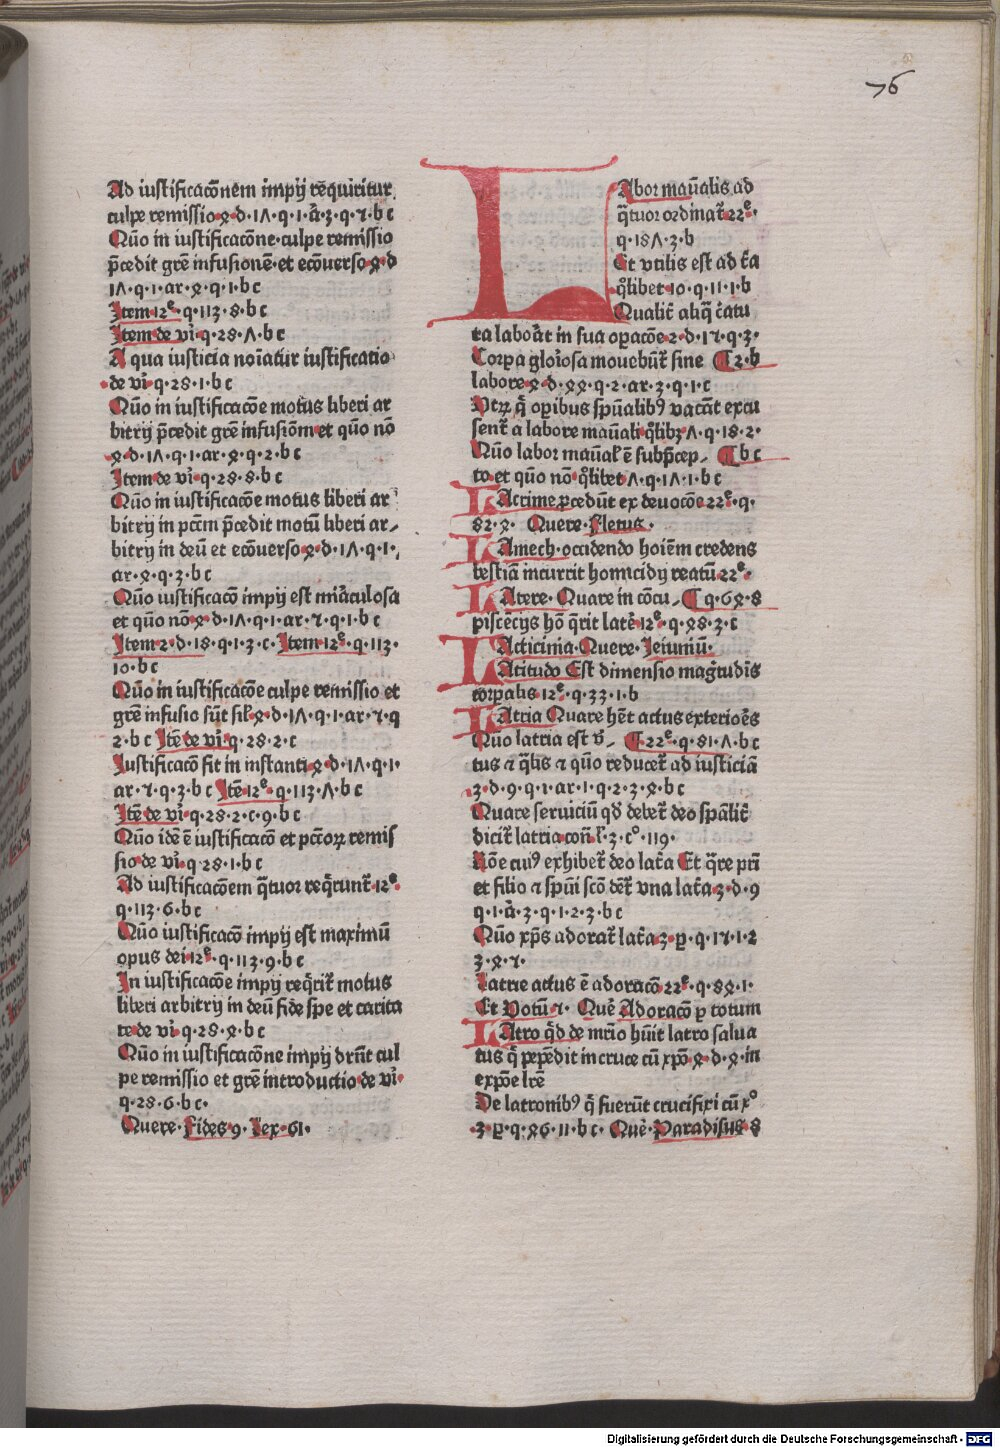 76
Ad iustificacōnem impij req̄uiritur
culpe remissio·4·d·17·q·1·ā·3·q·7·b c
Qūo in iustificacōne·culpe remissio
p̄cedit grē infusionē·et ecōuerso 4·d
17·q·1·ar·4·q·1·b c
Item·12ͤ·q·113·8·b c
Item de vī·q·28·7·b c
A qua iusticia noīatur iustificatio
de vī·q·28·1·b c
Qūo in iustificacōe motus liberi ar
bitrij p̄cedit grē infusiōm et qūo nō
4·d·17·q·1·ar·4·q·2·b c
Item de vī·q·28·8·b c
Qūo in iustificacōe motus liberi ar
bitrij in pctm̄ p̄cedit motū liberi ar⸗
bitrij in deū et ecōuerso 4·d·17·q·1·
ar·4·q·3·b c
Qūo iustificacō impij est mīaculosa
et qūo nō 4·d·17·q·1·ar·7·q·1·b c
Item 2·d·18·q·1·3·c·Item·12ͤ·q·113·
10·b c
Qūo in iustificacōe culpe remissio et
grē infusio sūt sīl 4·d·17·q·1·ar·7·q
2·b c Itē de vī·q·28·2·c
Iustificacō fit in instanti 4·d·17·q·1·
ar·7·q·3·b c Itē·12ͤ·q·113·7·b c
Itē de vī·q·28·2·c·9·b c
Qūo idē ē iustificacō et pctōꝝ remis
sio·de vī·q·28·1·b c
Ad iustificacōem q̄tuor req̄runt̄·12ͤ·
q·113·6·b c
Qūo iustificacō impij est maximū
opus dei·12ͤ·q·113·9·b c
In iustificacōe impij req̄rit̄ motus
liberi arbitrij in deū fide spe et carita
te·de vī·q·28·4·b c
Qūo in iustificacōne impij dr̄nt cul
pe remissio et grē introductio·de vī·
q·28·6·b c·
Quere·Fides·9·Lex·61·
LAbor māualis ad
q̄tuor ordinat̄·22ͤ·
q·187·3·b
Et vtilis est ad c̄ta
q̄libet·10·q·11·1·b
Qualit̄ aliq̄ c̄atu
ra laborāt in sua opacōe 2·d·17·q·3·
Corpa gloīosa mouebūt̄ sine ¶2·b
labore 4·d·44·q·2·ar·3·q·1·c
Vtꝝ q̄ opibus spūalib⁹ vacāt excu
sent̄ a labore māuali q̄libꝫ·7·q·18·2·
Qūo labor māual̄ ē sub p̄cep⸗ ¶b c
to et qūo nō·q̄libet·7·q·17·1·b c
LAcrime pcedūt ex deuocōe 22ͤ·q·
82·4· Quere·Fletus·
LAmech·occidendo hoiēm credens
bestiā incurrit homicidij reatū·22ͤ·
LAtere·Quare in cōcu⸗ ¶q·64·8
piscēcijs hō q̄rit latē·12ͤ·q·48·3·c
LActicinia·Quere·Ieiuniū·
LAtitudo Est dimensio mag̈tudīs
corpalis·12ͤ·q·33·1·b
LAtria Quare hēt actus exteriores
Qūo latria est v̄⸗ ¶22ͤ·q·81·7·b c
tus ⁊ q̄lis ⁊ qūo reducet̄ ad iusticiā
3·d·9·q·1·ar·1·q·2·3·4·b c
Quare seruiciū qd̄ debet̄ deo spālit̄
dicit̄ latria con̄ l·3·c°·119·
Rōe cui⁹ exhibet̄ deo lat̄a Et q̄re pr̄i
et filio ⁊ spūi scō det̄ vna lat̄a·3·d·9
q·1·ā·3·q·1·2·3·b c
Qūo xp̄s adorat̄ lat̄a 3·p·q·17·1·2
3·4·7·
Latrie actus ē adoracō 22ͤ·q·84·1·
Et Votū·1· Querē Adoracō p totum
LAtro q̄d de mr̄io hūit latro salua
tus q̄ pepēdit in cruce cū xp̄o 4·d·4·in
expōe lr̄e
De latronib⁹ q̄ fuerūt crucifixi cū x°
3·p·q·46·11·b c· Querē·Paradisus·8
Digitalisierung gefördert durch die Deutsche Forschungsgemeinschaft - DFG